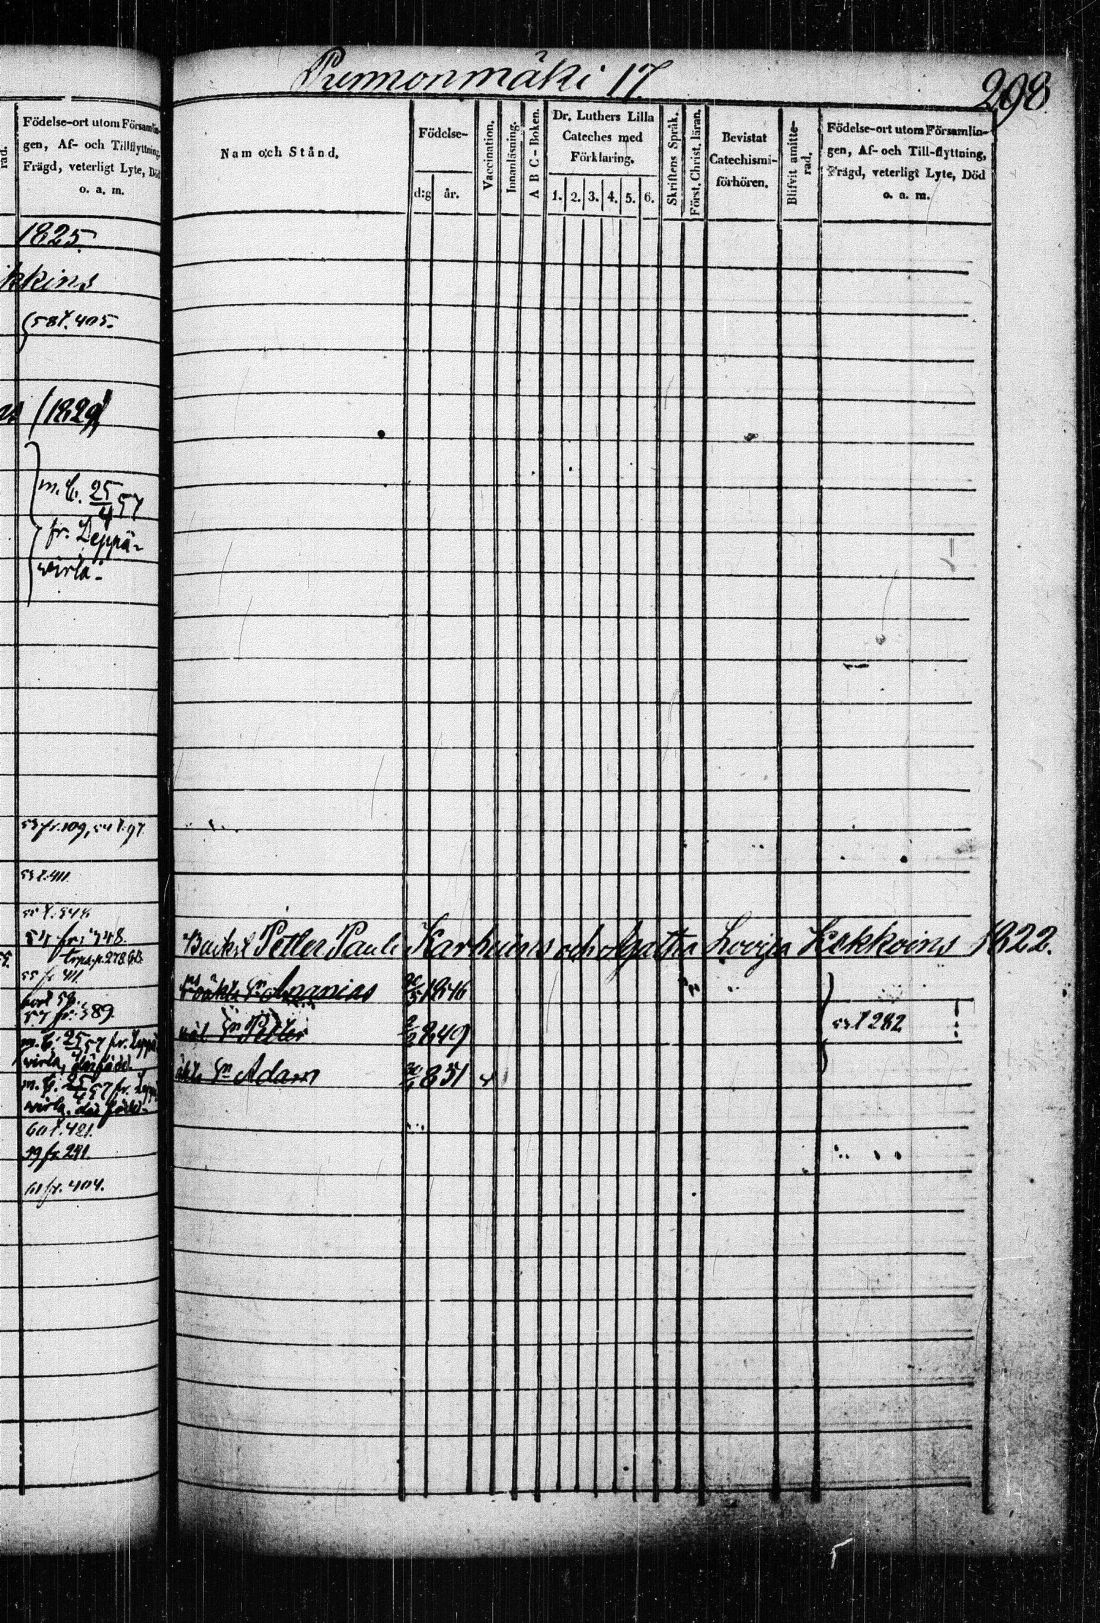 Födelse-ort utom Församlin-
gen, Af- och Tillflyttning,
Frägd, veterligt Lyte, Död
o. a. m.
rad.
1825.
kkins
58 t. 405.
(1829)
m. b. 25/4 57
fr. Leppä-
virta.
53 fr. 109, 54 t. 97
53 t. 411
54 fr. 348.
55 fr. 411.
57 fr. 389.
m. b. 25/4 57 fr. Leppä
virta,
m. b. 25/4 57 fr. Lepp
virta,
60 t. 421.
59 fr. 241.
61 fr. 404.
Purmonmäki 17
298
Nam och Stånd.
Födelse-
d:g
år.
Vaccination.
Innanläsning.
A B C - Boken.
Dr. Luthers Lilla
Cateches med
Förklaring.
1. 2. 3. 4. 5. 6.
Skriftens Språk.
Först. Christ. läran.
Bevistat
Catechismi-
förhören.
Blifvit amitte-
rad.
Födelse-ort utom Församlin-
gen, Af- och Till-flyttning,
Frägd, veterligt Lyte, Död
o. a. m.
Petter Pauli Karhuins och Agatha Lovisa Kekkoins 1822.
Sn Ananias 1846
Sn Petter 849
53 t 282
Sn Adam 851